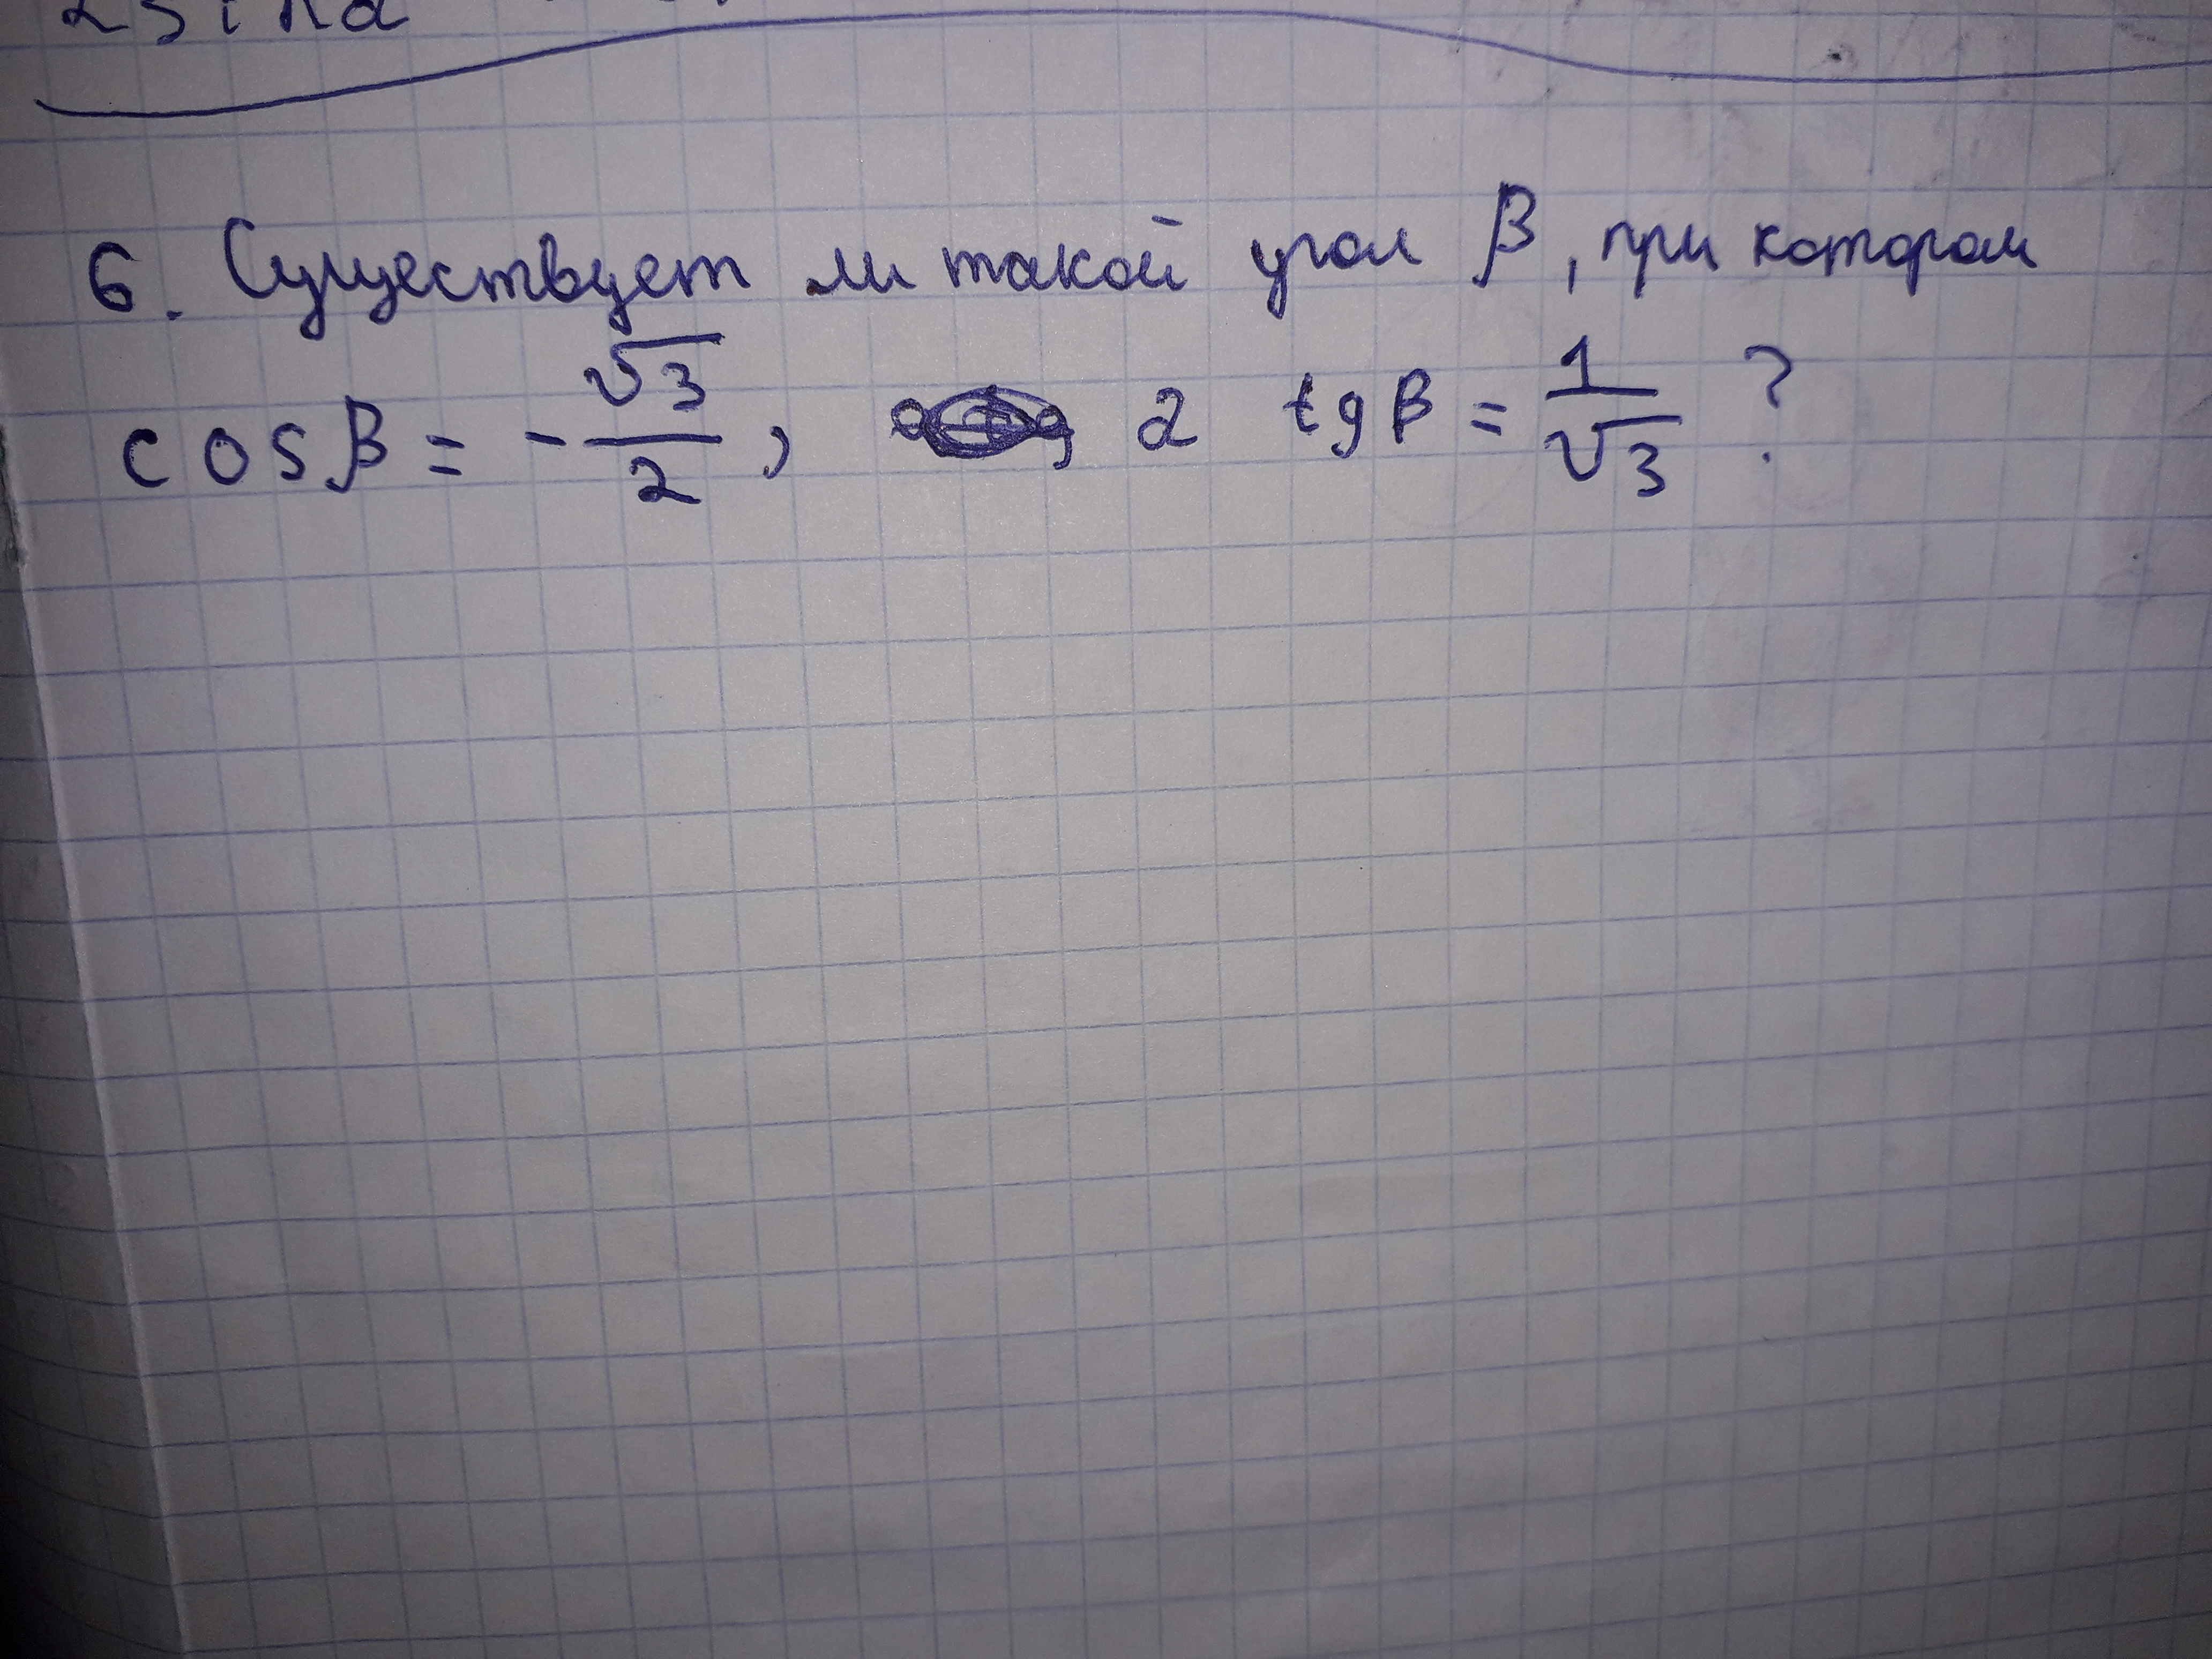 2sin2
6. Существует ли такой угол β, при котором
cosβ = -√3/2, а tgβ = 1/√3 ?